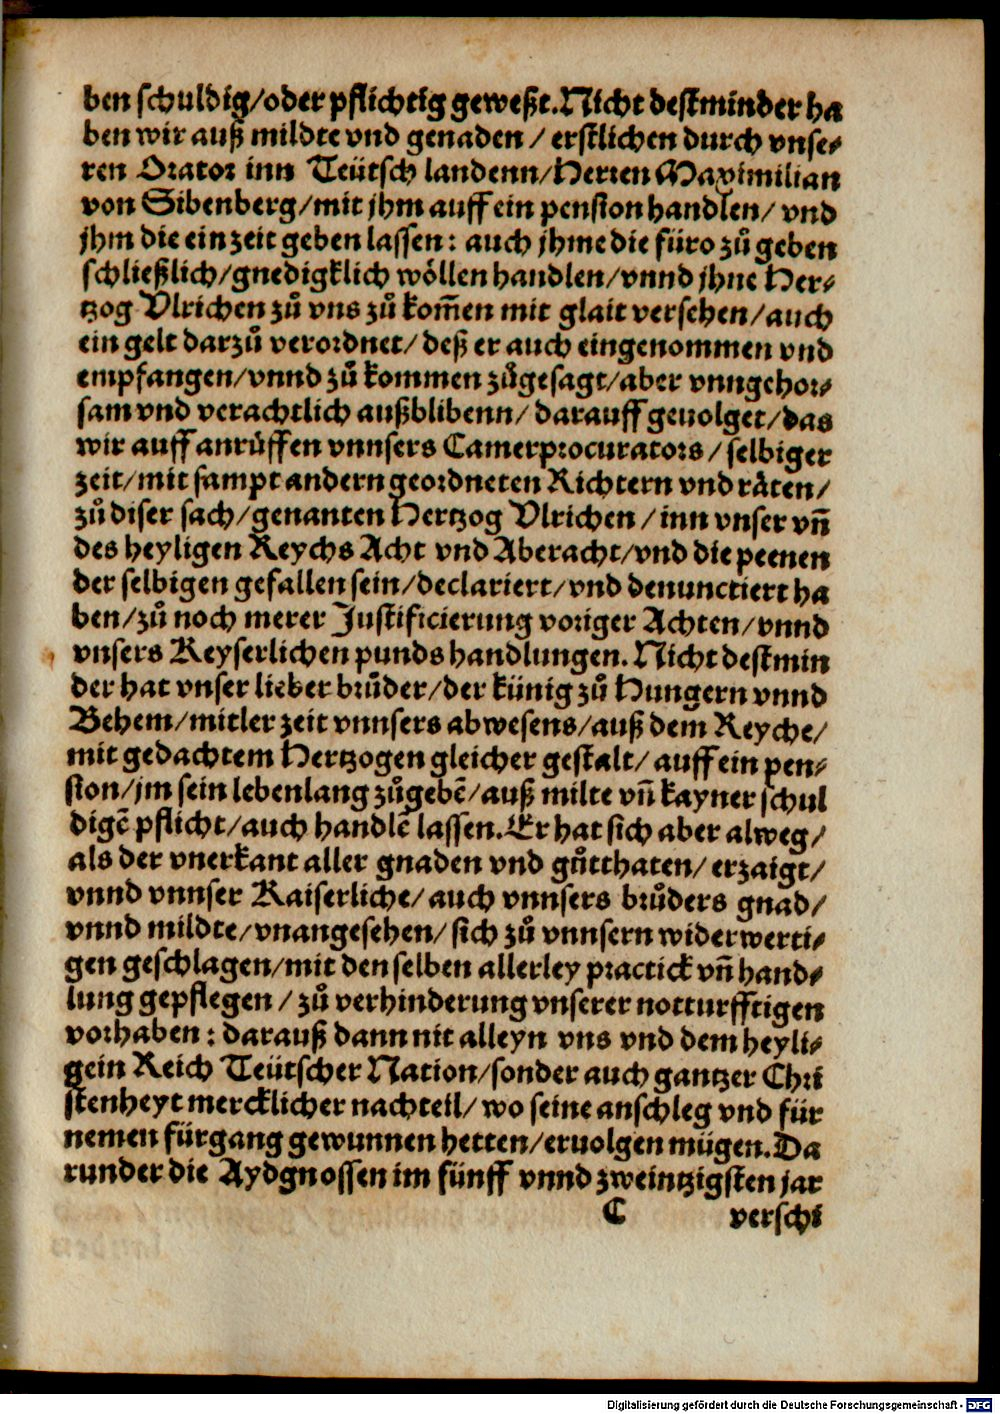 ben schuldig/oder pflichtig geweßt. Nicht destminder ha
ben wir auß mildte vnd genaden / erstlichen durch vnse⸗
ren Orator inn Teütsch landenn/Herren Maximilian
von Sibenberg/mit jhm auff ein pension handlen/ vnd
jhm die ein zeit geben lassen: auch jhme die füro zů geben
schließlich/gnedigklich wöllen handlen/vnnd jhne Her⸗
tzog Vlrichen zů vns zů kom̃en mit glait versehen/auch
ein gelt darzů verordnet/ deß er auch eingenommen vnd
empfangen/vnnd zů kommen zůgesagt/aber vnngehor⸗
sam vnd verachtlich außblibenn/ darauff geuolget/das
wir auff anrůffen vnnsers Camerprocurators/ selbiger
zeit/mit sampt andern geordneten Richtern vnd räten/
zů diser sach/genanten Hertzog Vlrichen /inn vnser vn̄
des heyligen Reychs Acht vnd Aberacht/vnd die peenen
der selbigen gefallen sein/declariert/vnd denunctiert ha
ben/zů noch merer Justificierung voriger Achten/vnnd
vnsers Keyserlichen punds handlungen. Nicht destmin
der hat vnser lieber brůder/der künig zů Hungern vnnd
Behem/mitler zeit vnnsers abwesens/auß dem Reyche/
mit gedachtem Hertzogen gleicher gestalt/ auff ein pen⸗
sion/jm sein lebenlang zůgebē/auß milte vn̄ kayner schul
digē pflicht/auch handlē lassen. Er hat sich aber alweg/
als der vnerkant aller gnaden vnd gůtthaten/ erzaigt/
vnnd vnnser Kaiserliche/ auch vnnsers brůders gnad/
vnnd mildte/vnangesehen/ sich zů vnnsern widerwerti⸗
gen geschlagen/mit den selben allerley practick vn̄ hand⸗
lung gepflegen / zů verhinderung vnserer notturfftigen
vorhaben: darauß dann nit alleyn vns vnd dem heyli⸗
gein Reich Teütscher Nation/sonder auch gantzer Chri
stenheyt mercklicher nachteil/ wo seine anschleg vnd für
nemen fürgang gewunnen hetten/eruolgen mügen. Da
runder die Aydgnossen im fünff vnnd zweintzigsten jar
C verschi
Digitalisierung gefördert durch die Deutsche Forschungsgemeinschaft - DFG